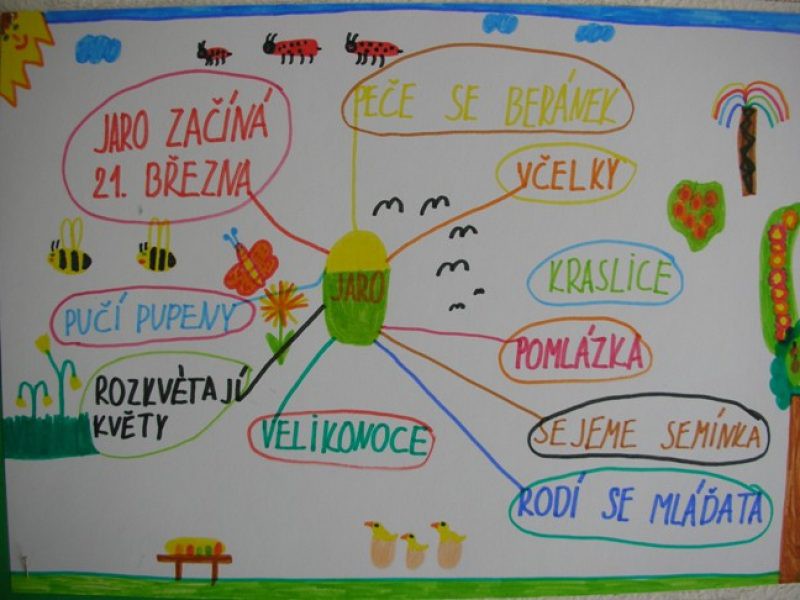 JARO ZAČÍNÁ
21. BŘEZNA
PEČE SE BERÁNEK
VČELKY
KRASLICE
JARO
PUČÍ PUPENY
POMLÁZKA
ROZKVĚTAJÍ
KVĚTY
VELIKONOCE
SEJEME SEMÍNKA
RODÍ SE MLÁĎATA